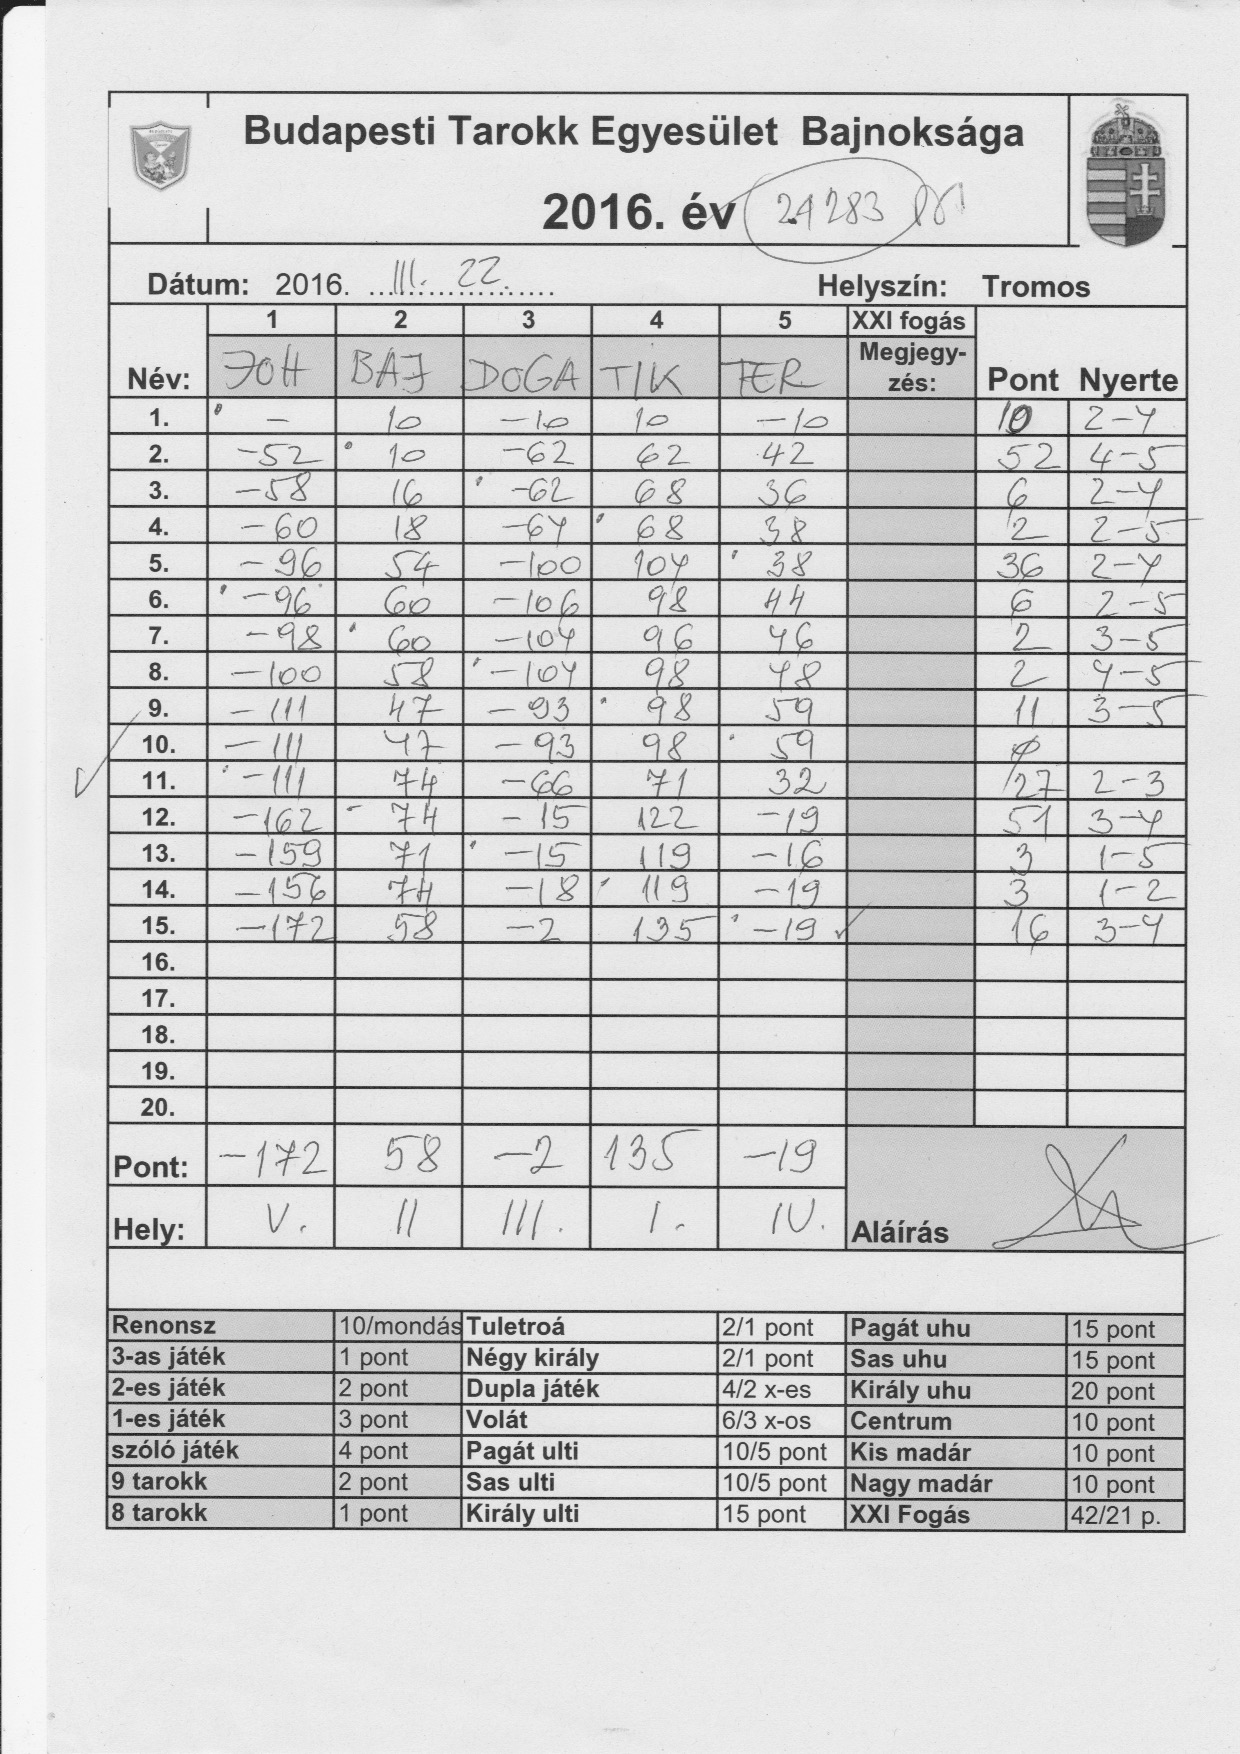 Budapesti Tarokk Egyesület Bajnoksága
2016. év 24283
Dátum: 2016. III. 22. Helyszín: Tromos
1 2 3 4 5 XXI fogás
Név: JOH BAJ DOGA TIK FER Megjegy-zés: Pont Nyerte
1. – 10 –10 10 –10 10 2–4
2. –52 10 –62 62 42 52 4–5
3. –58 16 –62 68 36 6 2–4
4. –60 18 –64 68 38 2 2–5
5. –96 54 –100 104 38 36 2–4
6. –96 60 –106 98 44 6 2–5
7. –98 60 –104 96 46 2 3–5
8. –100 58 –104 98 48 2 4–5
9. –111 47 –93 98 59 11 3–5
10. –111 47 –93 98 59 0
11. –111 74 –66 71 32 27 2–3
12. –162 74 –15 122 –19 51 3–4
13. –159 71 –15 119 –16 3 1–5
14. –156 74 –18 119 –19 3 1–2
15. –172 58 –2 135 –19 16 3–4
16.
17.
18.
19.
20.
Pont: –172 58 –2 135 –19
Hely: V. II III. I. IV. Aláírás
Renonsz 10/mondás Tuletroá 2/1 pont Pagát uhu 15 pont
3-as játék 1 pont Négy király 2/1 pont Sas uhu 15 pont
2-es játék 2 pont Dupla játék 4/2 x-es Király uhu 20 pont
1-es játék 3 pont Volát 6/3 x-os Centrum 10 pont
szóló játék 4 pont Pagát ulti 10/5 pont Kis madár 10 pont
9 tarokk 2 pont Sas ulti 10/5 pont Nagy madár 10 pont
8 tarokk 1 pont Király ulti 15 pont XXI Fogás 42/21 p.